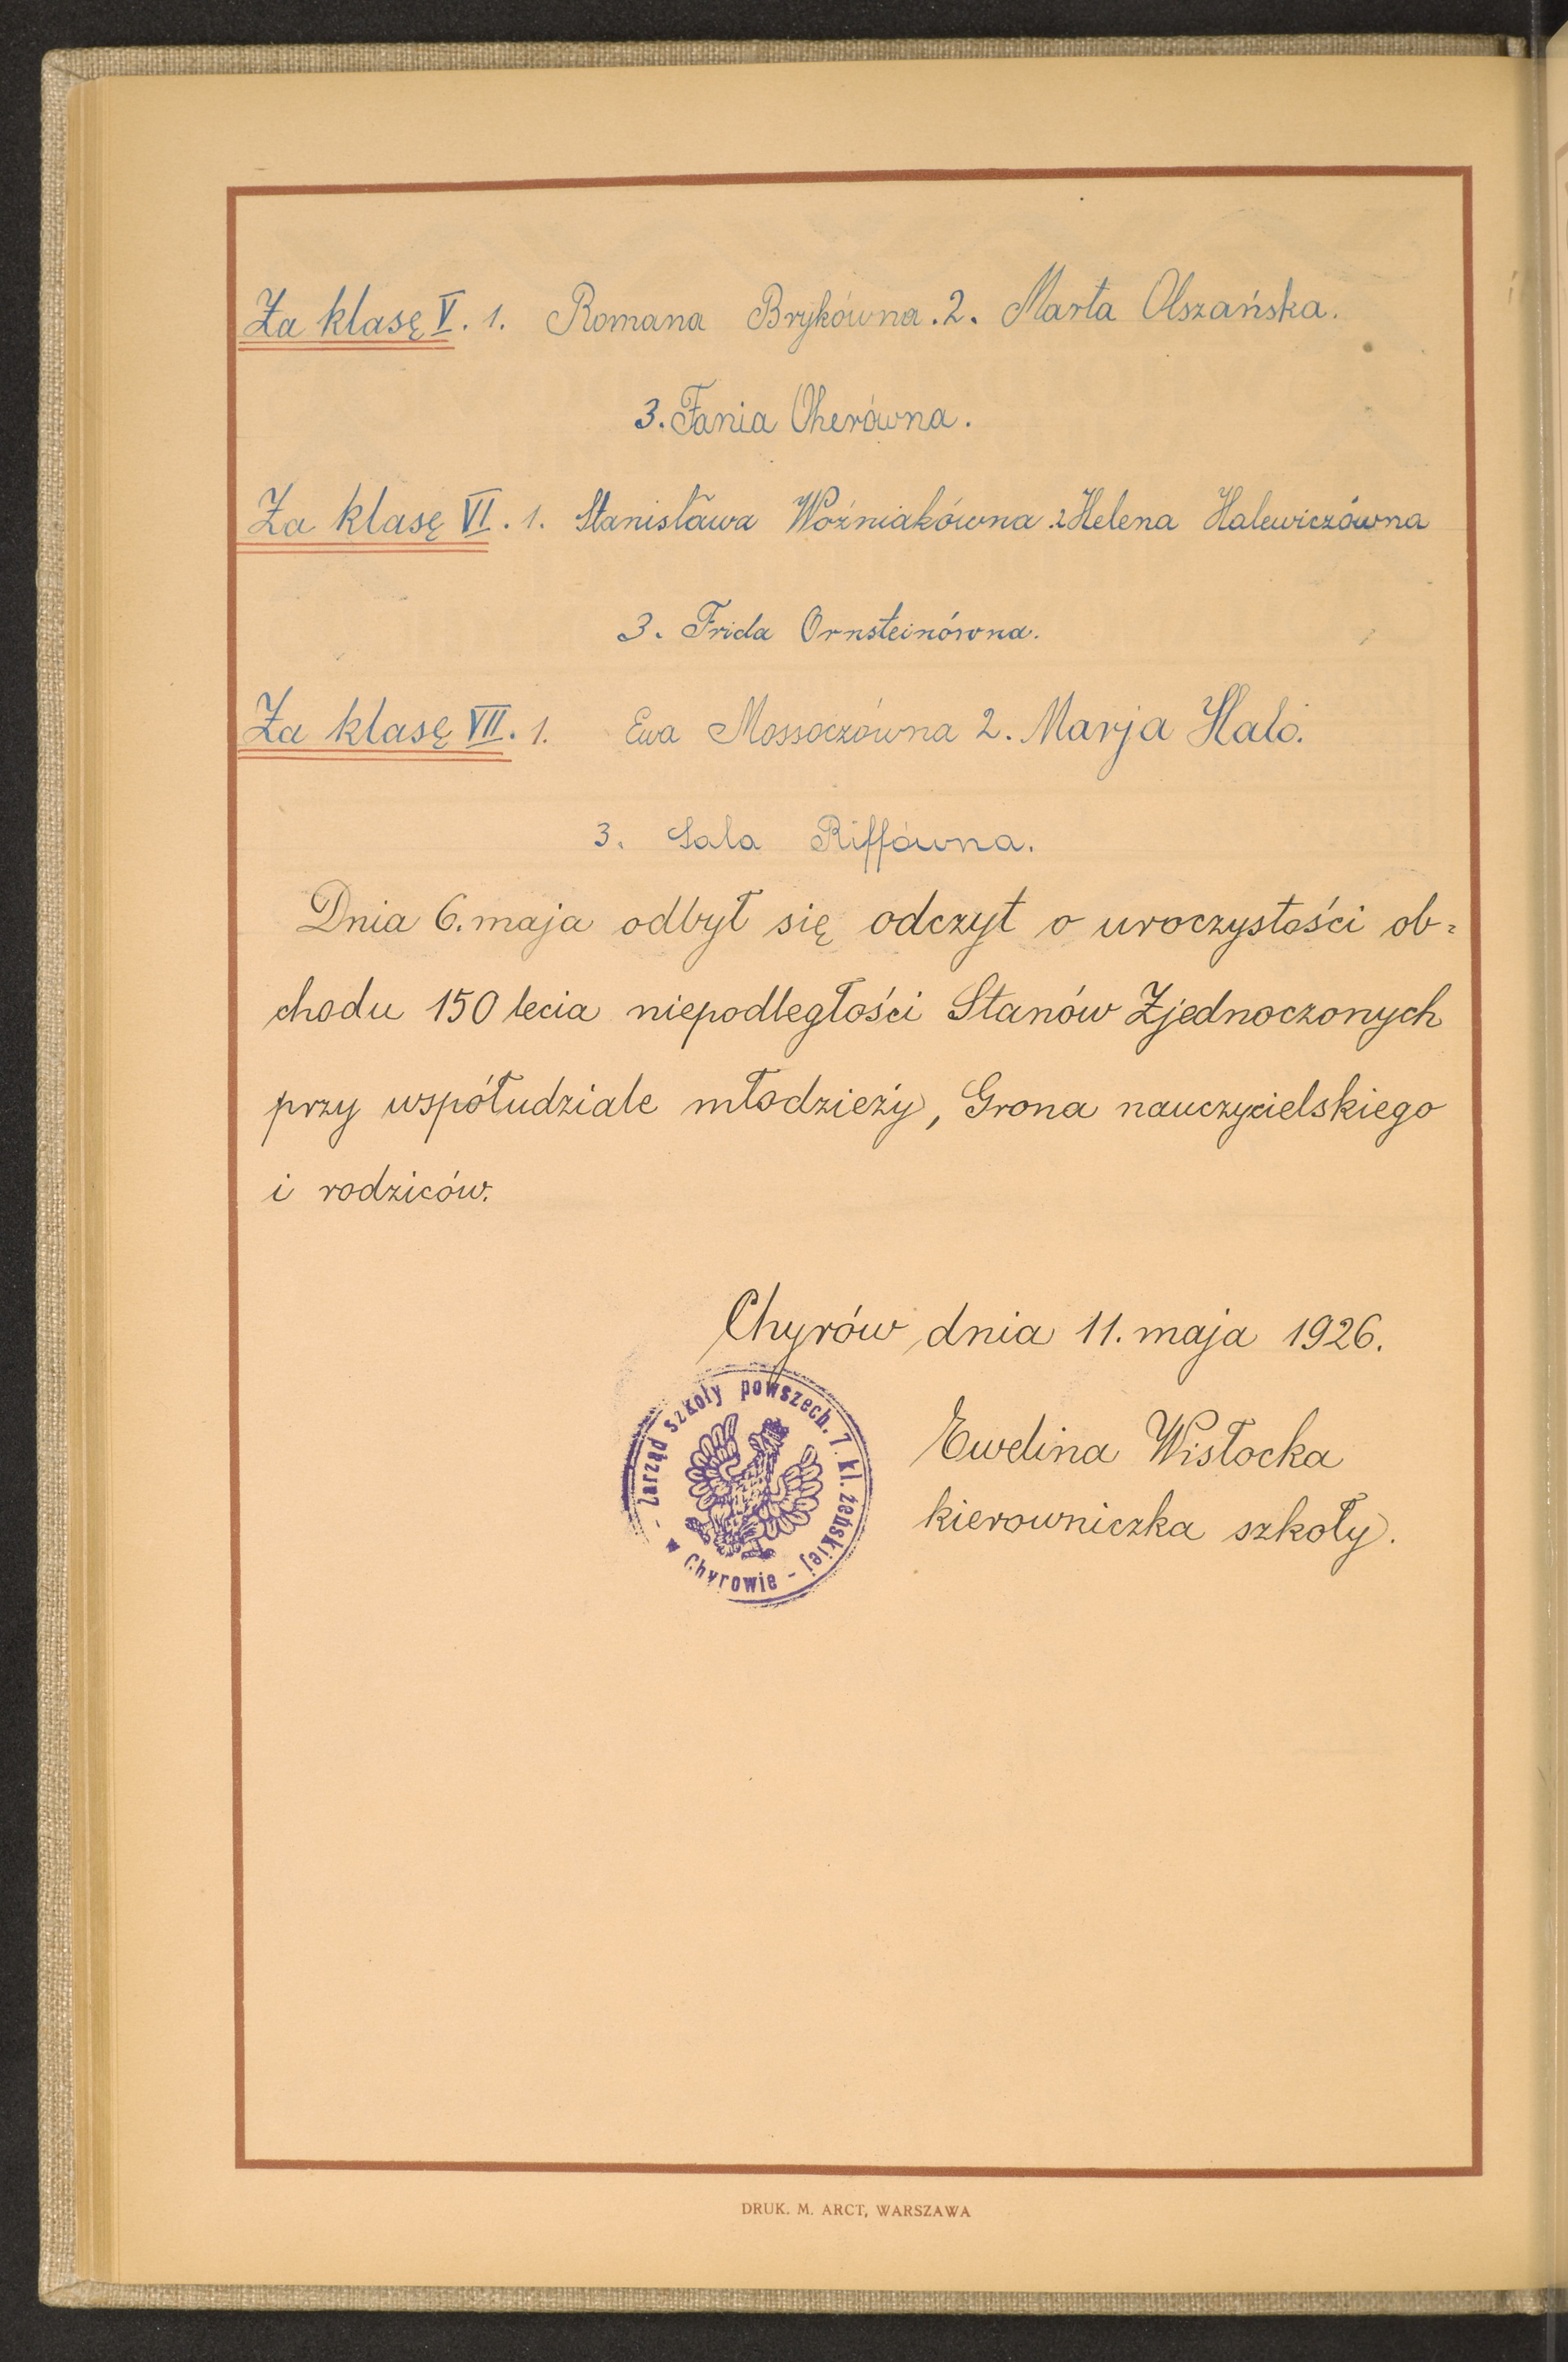 Za klasę V. 1. Romana Brykówna. 2. Marta Olszańska.
3. Fania Oherówna.
Za klasę VI. 1. Stanisława Woźniakówna 2 Helena Halewiczówna
3. Frida Ornsteinówna.
Za klasę VII. 1. Ewa Mossoczówna 2. Marja Haló.
3. Sala Riffówna.
Dnia 6. maja odbył się odczyt o uroczystości ob=
chodu 150 lecia niepodległości Stanów Zjednoczonych
przy współudziale młodzieży, Grona nauczycielskiego
i rodziców.
Chyrów dnia 11. maja 1926.
Zarząd szkoły powszech. 7. kl. żeńskiej - w Chyrowie -
Ewelina Wisłocka
kierowniczka szkoły.
DRUK. M. ARCT, WARSZAWA